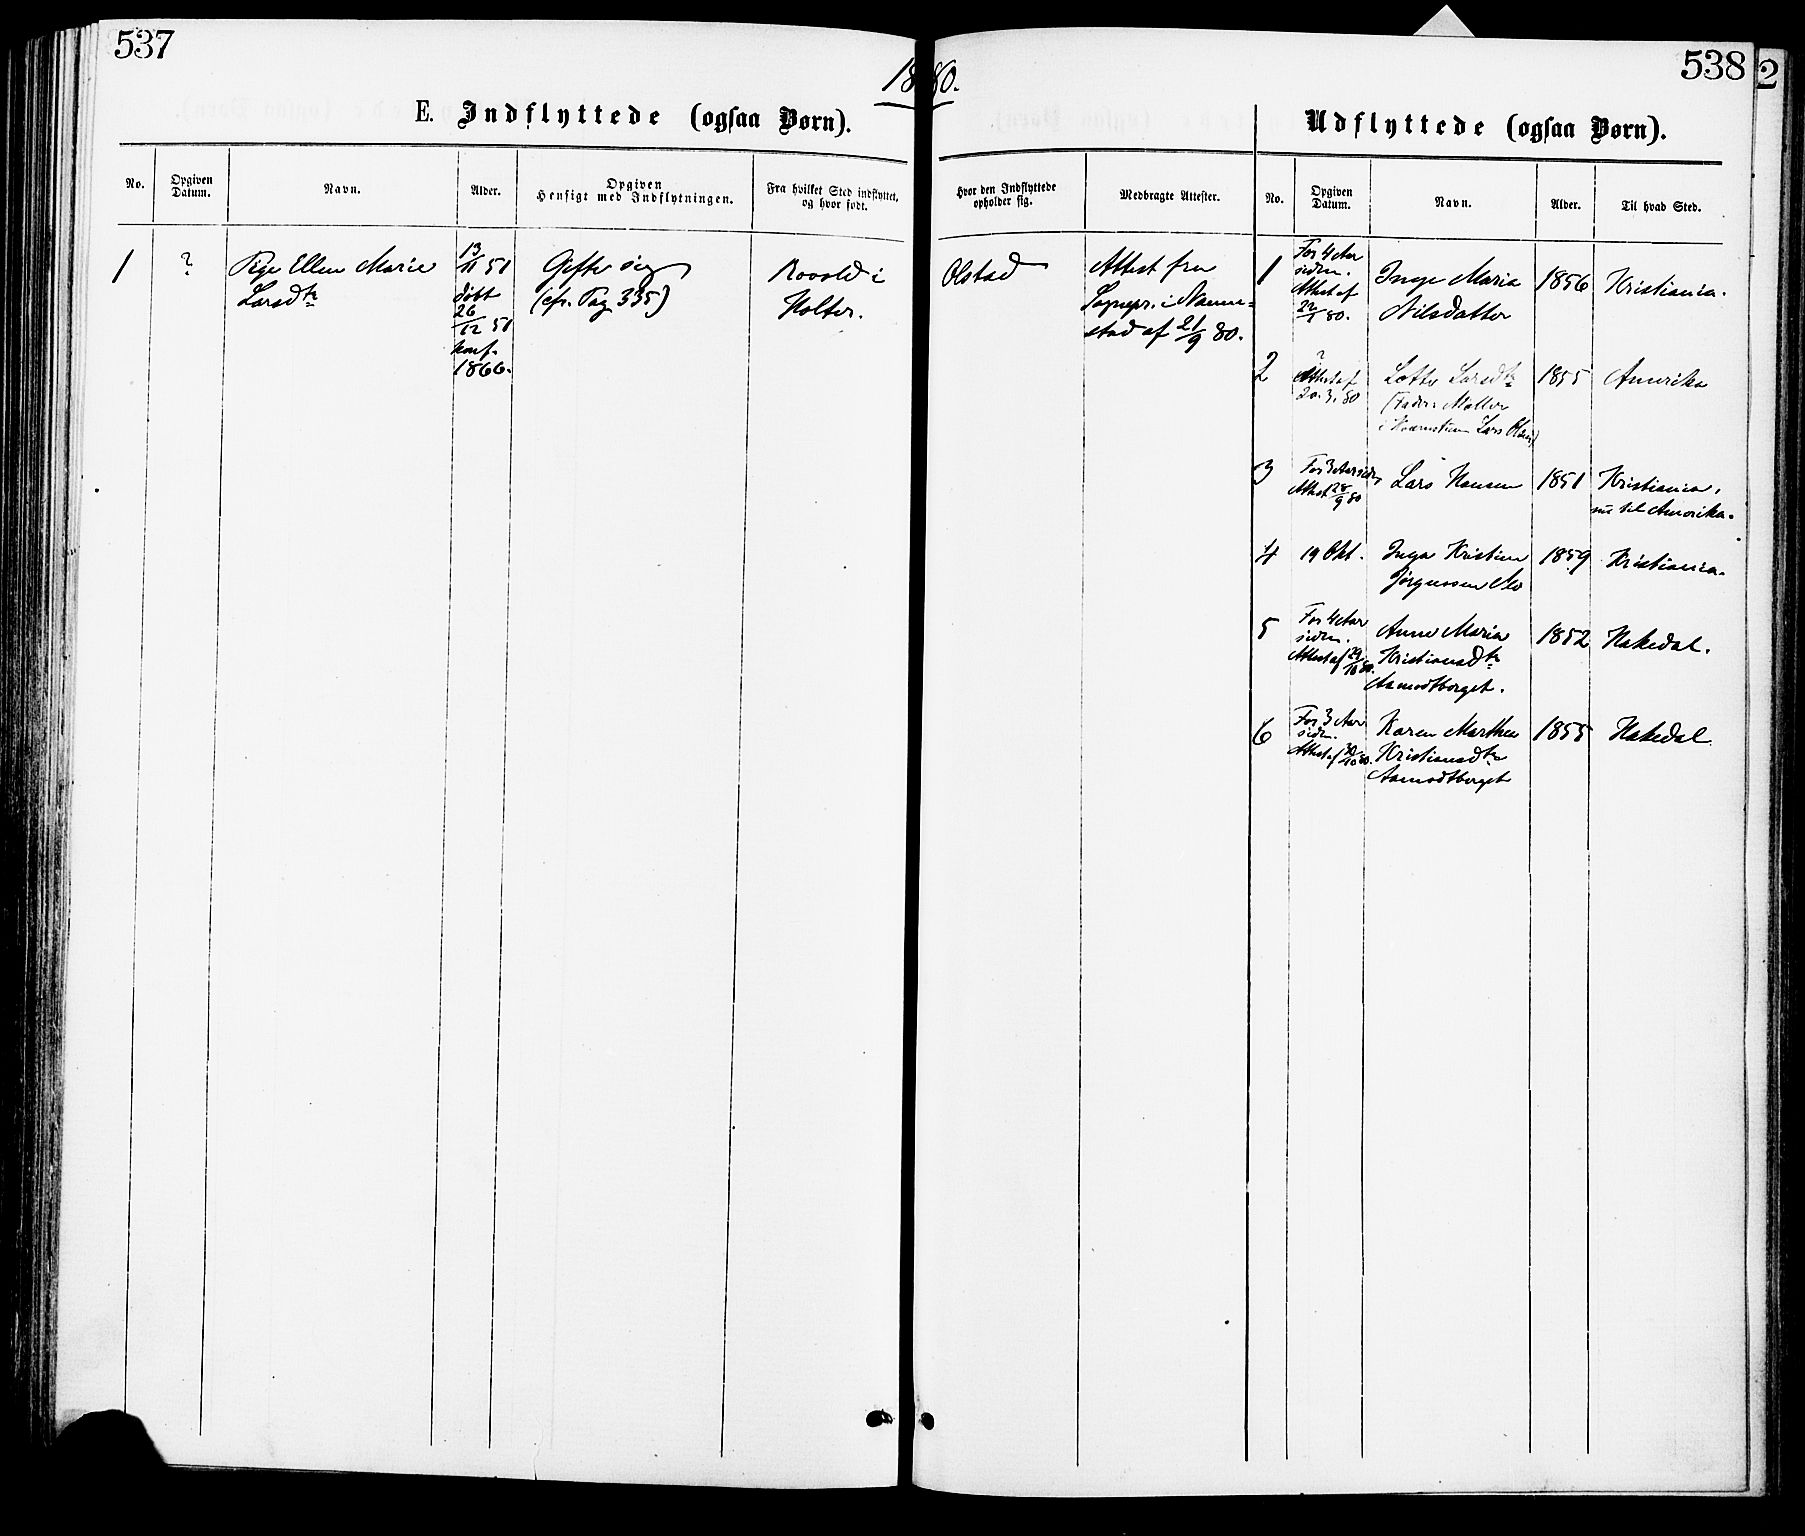 537
538
2
1880.
E. Indflyttede (ogsaa Børn).
Udflyttede (ogsaa Børn).
No.
Opgiven
Datum.
Navn.
Alder.
Opgiven
Hensigt med Indflytningen.
Fra hvilket Sted indflyttet,
og hvor født.
Hvor den Indflyttede
opholder sig.
Medbragte Attester.
No.
Opgiven
Datum.
Navn.
Alder.
Til hvad Sted.
1
?
Pige Ellen Marie
Larsdtr
13/11 51
døbt
26/12 51
konf.
1866.
Gifte sig
(cfr. Pag 335)
Rovold i
Holter.
Olstad
Attest fra
Sognepr. i Nanne=
stad af 21/9 80.
1
For 4 Aar
siden.
Attest af
22/1 80.
Inge Maria
Nilsdatter
1856
Kristiania.
2
?
Attest af
20.3.80
Lotte Larsdtr
(Fader: Møller
i Lars Olsen)
1855
Amerika
3
For 3 Aar siden
Attest 28/9 80
Lars Hansen
1851
Kristiania,
nu til Amerika.
4
19 Okt.
Inga Kristine
Jørgensen Mo
1859
Kristiania.
5
For 4 Aar
siden.
Attest af 29/10 80.
Anne Maria
Kristiansdtr
Aamodtberget.
1852
Hakedal.
6
For 3 Aar
siden.
Attest af 30/10 80.
Karen Marthea
Kristiansdtr
Aamodtberget
1855
Hakedal